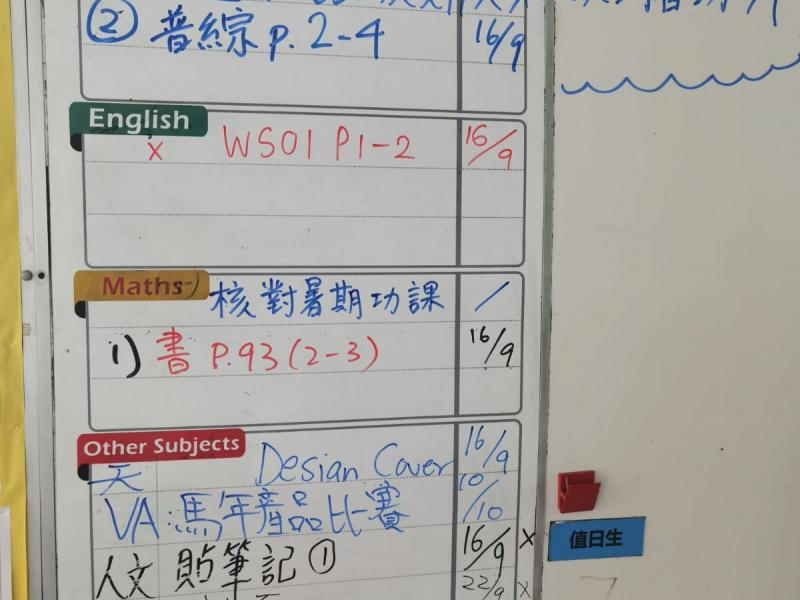 ② 普綜 p. 2-4 16/9
English
x WS01 P1-2 16/9
Maths
核對暑期功課 /
1) 書 P.93 (2-3) 16/9
Other Subjects
Desian Cover 16/9
VA:馬年產品比賽 10/10
人文 貼筆記① 16/9 x
22/9 x
值日生